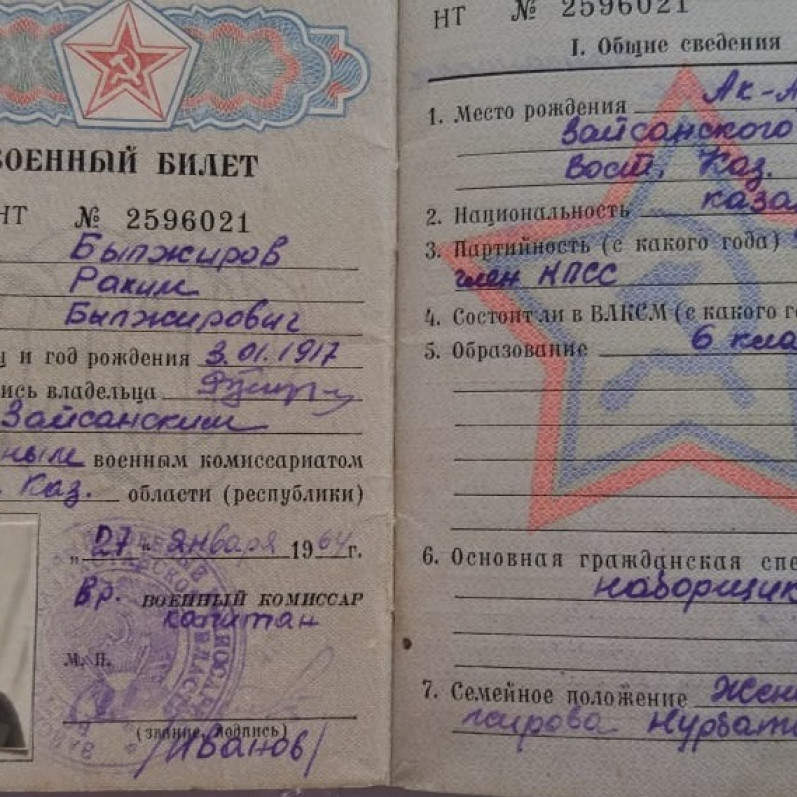 ВОЕННЫЙ БИЛЕТ
НТ № 2596021
Былжиров
Рахим
Былжирович
и год рождения 3.01.1917
ись владельца
Зайсанским
ным военным комиссариатом
Каз. области (республики)
„27" января 1964 г.
Вр. ВОЕННЫЙ КОМИССАР
капитан
М. П.
(звание, подпись)
/Иванов/
НТ № 2596021
I. Общие сведения
1. Место рождения Ак-
Зайсанского
Вост. Каз.
2. Национальность каза
3. Партийность (с какого года)
член КПСС
4. Состоит ли в ВЛКСМ (с какого г
5. Образование 6 кла
6. Основная гражданская спе
наборщик
7. Семейное положение Жен
Нурбат